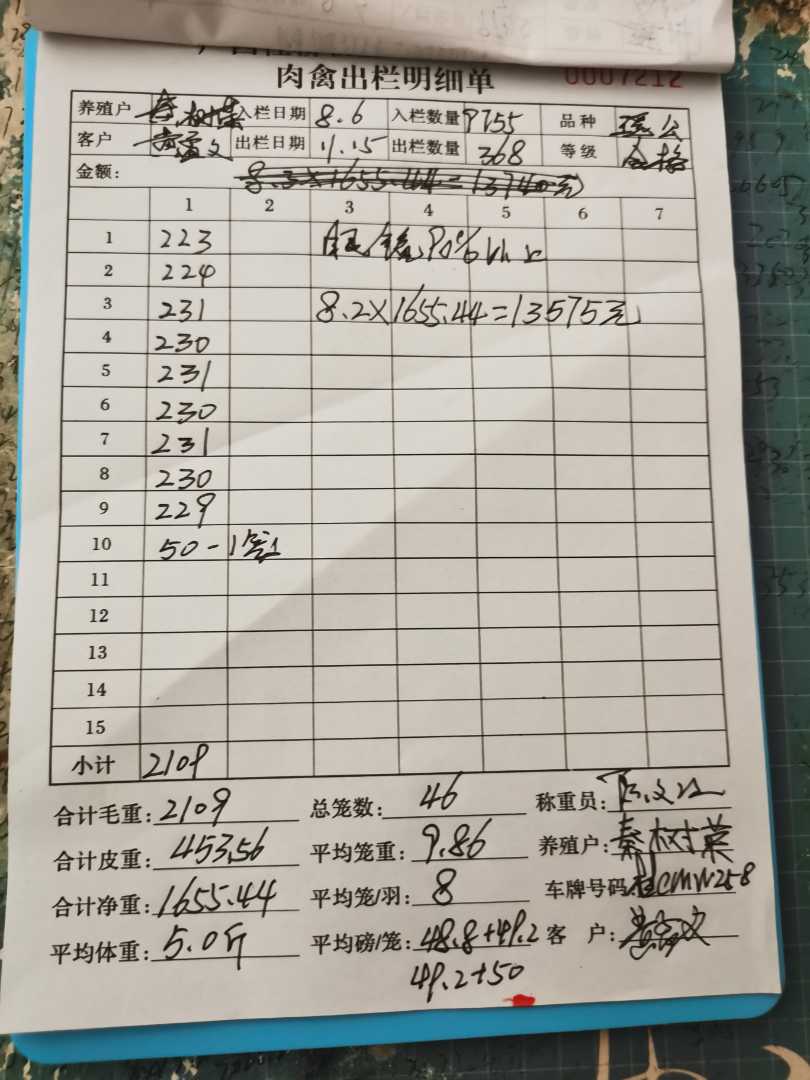 肉禽出栏明细单 0007212
养殖户 秦树菜 入栏日期 8.6 入栏数量 9755 品种
客户 出栏日期 11.15 出栏数量 368 等级 合格
金额: 8.3×1655.44=13740元
1 2 3 4 5 6 7
1 223 90%以上
2 224
3 231 8.2×1655.44=13575元
4 230
5 231
6 230
7 231
8 230
9 229
10 50-1笼
11
12
13
14
15
小计 2109
合计毛重: 2109 总笼数: 46 称重员:
合计皮重: 453.56 平均笼重: 9.86 养殖户: 秦树菜
合计净重: 1655.44 平均笼/羽: 8 车牌号码 桂CMW258
平均体重: 5.0斤 平均磅/笼: 48.8+49.2 客 户:
49.2+50